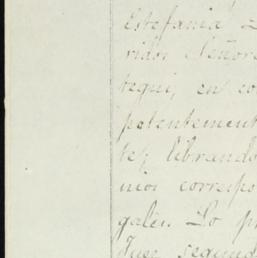 Estefania
ridos Señores
tegui, en co
patentement
te; librando
nios correspo
gales. Lo pr
Juez segundo